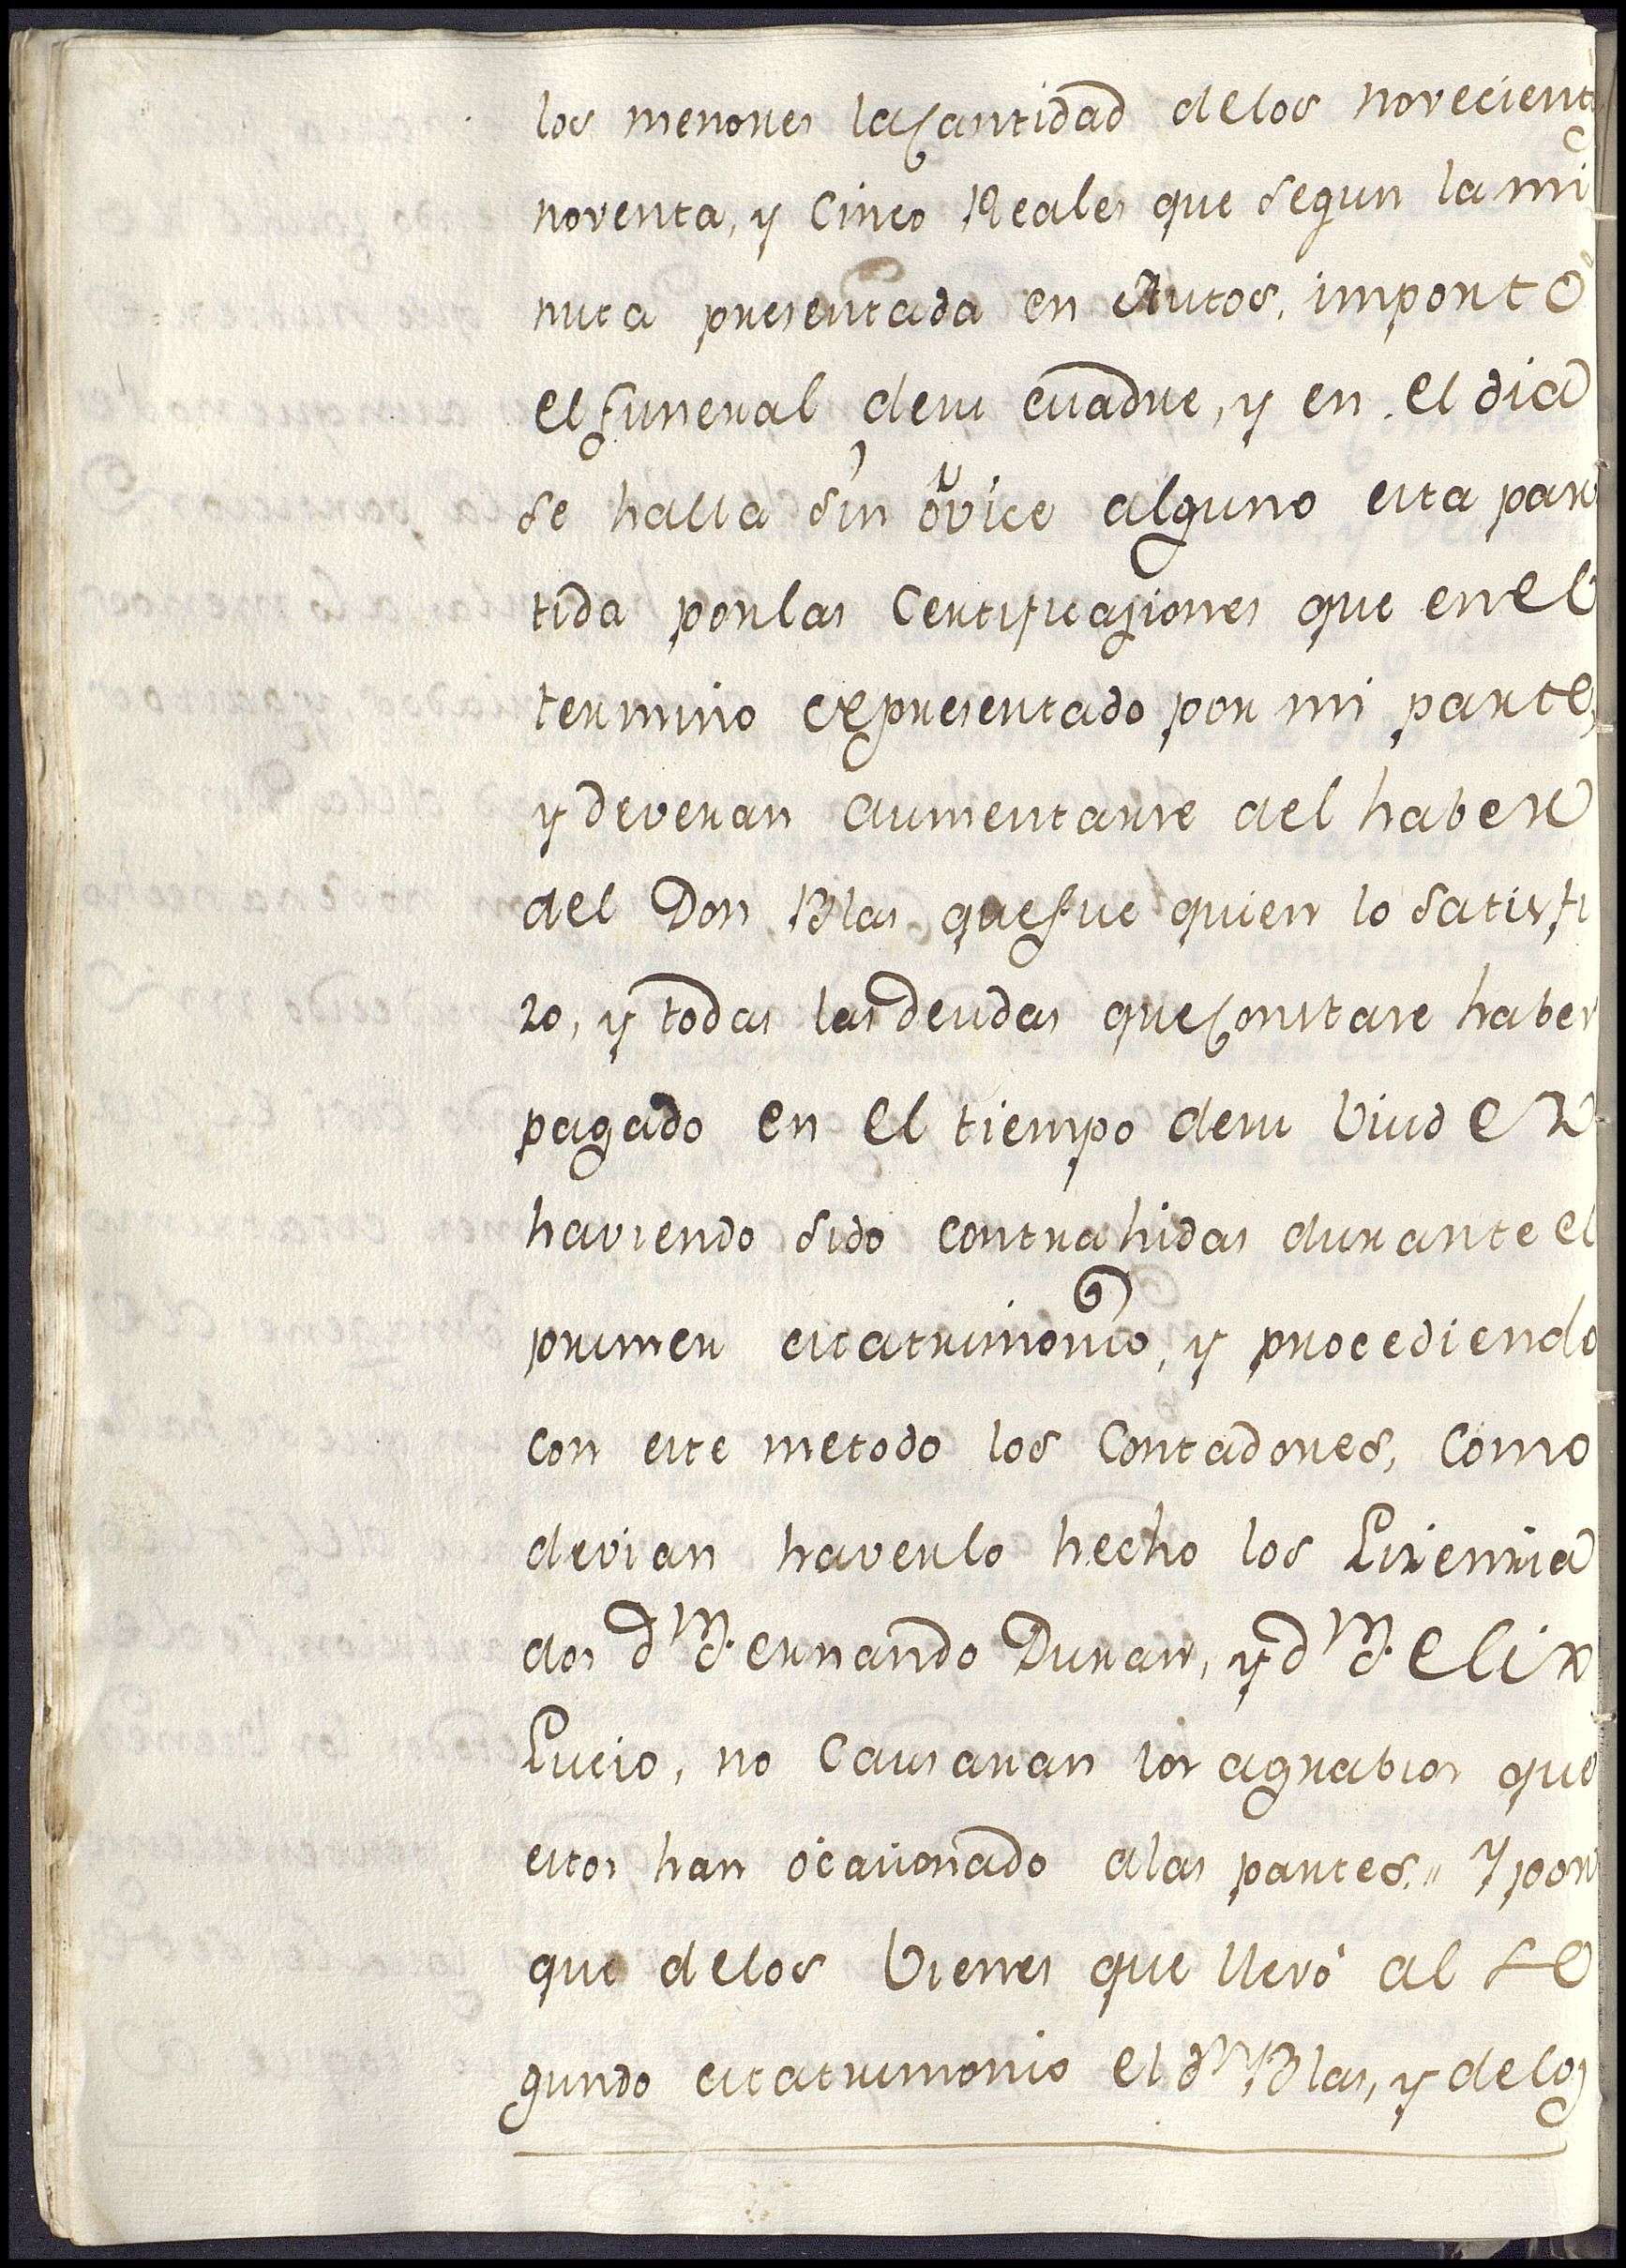 los menores la cantidad de los novecient
noventa, y Cinco Reales que segun la mi
nuta presentada en Autos, importó
el funeral de su Madre, y en el dia
se halla sin óvice alguno esta par
tida por las Certificasiones que en el
termino é presentado por mi parte,
y deveran aumentarse del haber
del Don Blas que fue quien lo satisfi
zo, y todas las deudas que constare haber
pagado en el tiempo de su Viudez
haviendo sido contrahidas durante el
primer Matrimonio, y procediendo
con este metodo los Contadores, como
devian haverlo hecho los Lizencia
dos dn Fernando Duran, y dn Felix
Lucio, no causaran los agrabios que
estos han ócasionado alas partes. " Y por
que de los Vienes que llevó al se
gundo Matrimonio el dn Blas, y de los